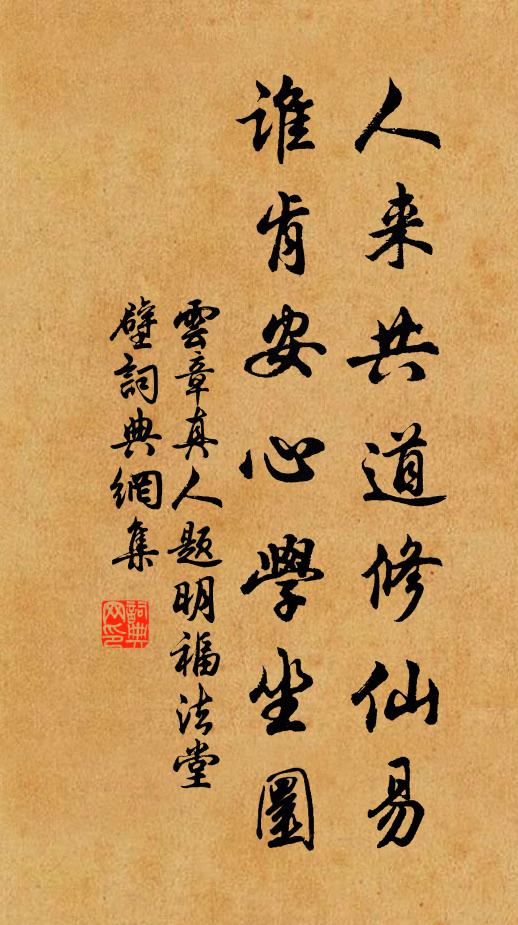 人来共道修仙易
谁肯安心學坐圜
雲章真人题明福法堂
壁詞典網集
詞典网印